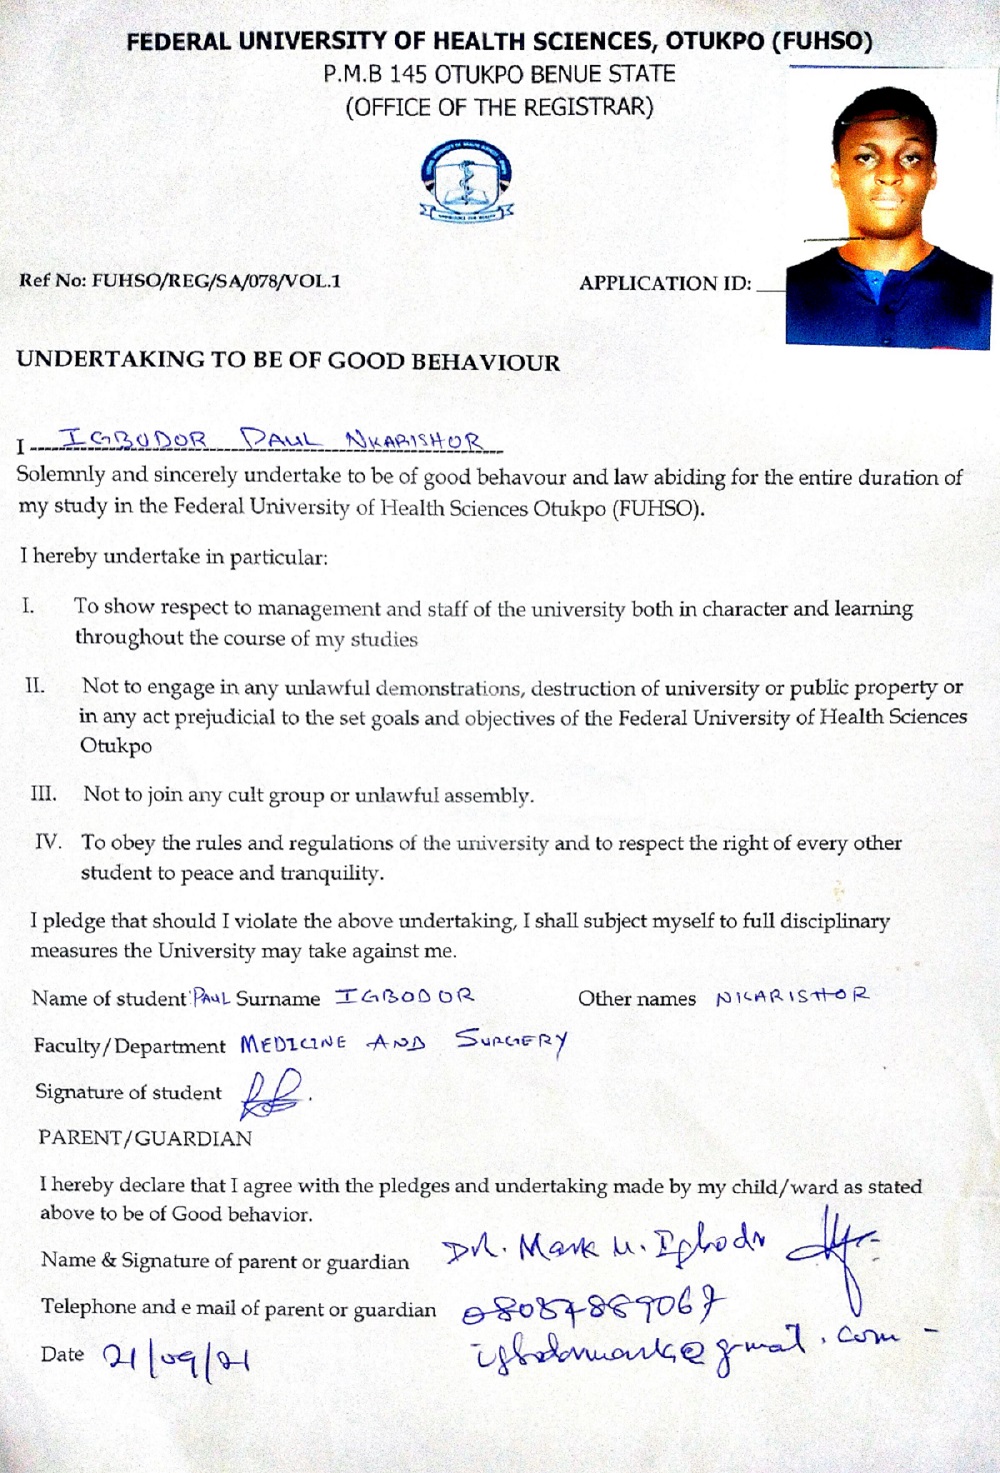 FEDERAL UNIVERSITY OF HEALTH SCIENCES, OTUKPO (FUHSO)
P.M.B 145 OTUKPO BENUE STATE
(OFFICE OF THE REGISTRAR)
Ref No: FUHSO/REG/SA/078/VOL.1
APPLICATION ID:
UNDERTAKING TO BE OF GOOD BEHAVIOUR
I IGBODOR PAUL NKARISHOR
Solemnly and sincerely undertake to be of good behavour and law abiding for the entire duration of
my study in the Federal University of Health Sciences Otukpo (FUHSO).
I hereby undertake in particular:
I. To show respect to management and staff of the university both in character and learning
throughout the course of my studies
II. Not to engage in any unlawful demonstrations, destruction of university or public property or
in any act prejudicial to the set goals and objectives of the Federal University of Health Sciences
Otukpo
III. Not to join any cult group or unlawful assembly.
IV. To obey the rules and regulations of the university and to respect the right of every other
student to peace and tranquility.
I pledge that should I violate the above undertaking, I shall subject myself to full disciplinary
measures the University may take against me.
Name of student PAUL Surname IGBODOR Other names NKARISHOR
Faculty/Department MEDICINE AND SURGERY
Signature of student
PARENT/GUARDIAN
I hereby declare that I agree with the pledges and undertaking made by my child/ward as stated
above to be of Good behavior.
Name & Signature of parent or guardian DR. Mark U. Igbodor
Telephone and e mail of parent or guardian 08087889067
igbodormark@gmail.com
Date 21/09/21